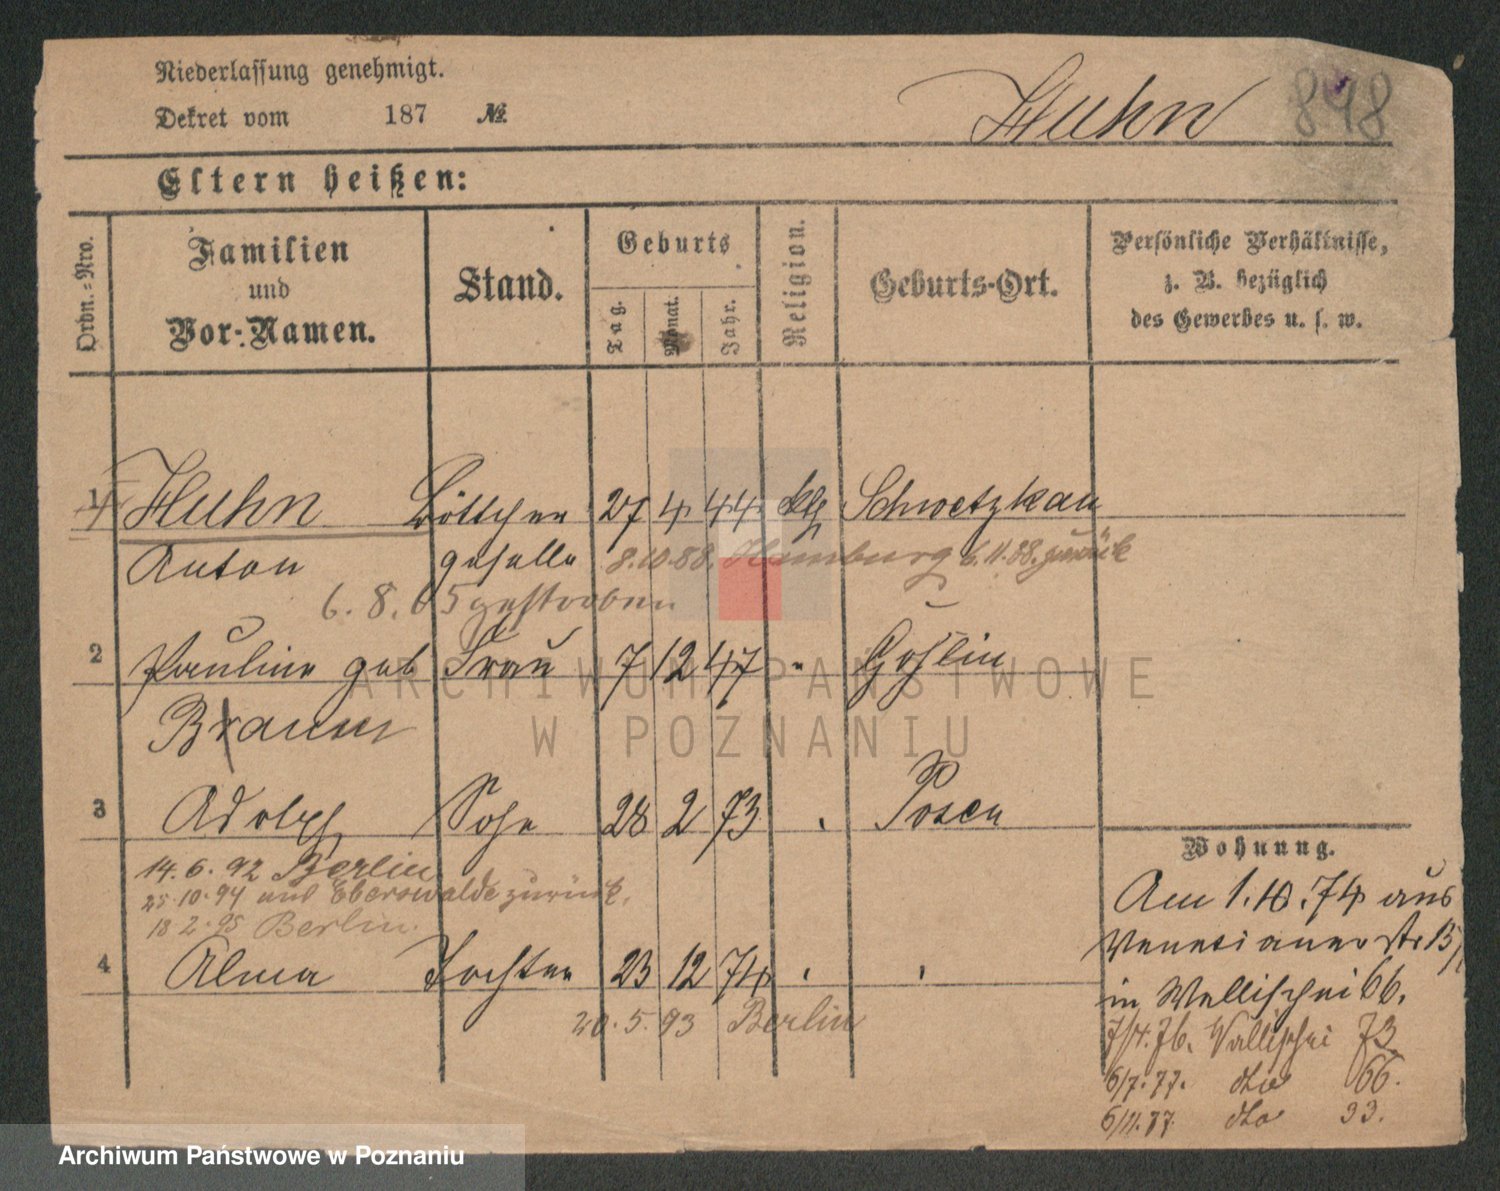 Niederlassung genehmigt.
Dekret vom 187 №
Huhn 848
Eltern heißen:
Ordn.-Nro.
Familien
und
Vor-Namen.
Stand.
Geburts
Tag.
Monat.
Jahr.
Religion.
Geburts-Ort.
Persönliche Verhältnisse,
z. B. bezüglich
des Gewerbes u. s. w.
1 Huhn Böttcher 27 4 44 klg Schwetzkau
Anton geselle 8.10.88. Hamburg 6.11.88. zurück
6.8.05 gestorben
2 Pauline geb Frau 7 12 47 " Goslin
Braun
3 Adolph Sohn 28 2 73 " Posen
14.6.92 Berlin
25.10.94 aus Eberswalde zurück.
18 2.95 Berlin.
4 Alma Tochter 23 12 74 " "
20.5.93 Berlin
Wohnung.
Am 1.10.74 aus
Venetianerstr 15/
in Wallischei 66.
7/4.76. Wallischei 73
6/7.77. dto 66.
6/11.77 dto 33.
ARCHIWUM PAŃSTWOWE
W POZNANIU
Archiwum Państwowe w Poznaniu